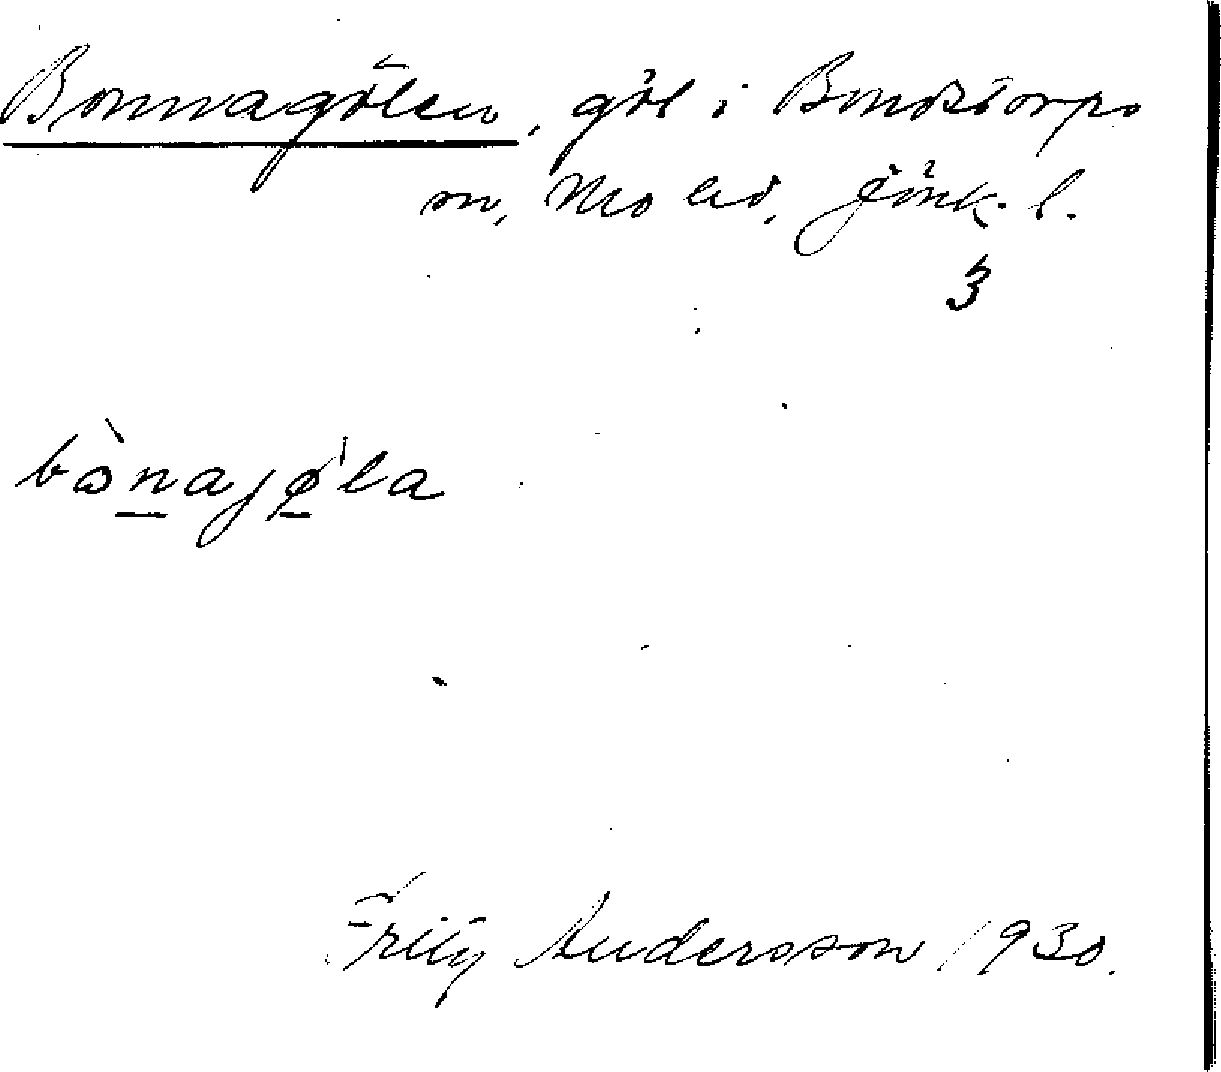 Bonnagölen, göl i Bondstorps
sn, Mo hd, Jönk. l.
3
bònajø̀la
Fritz Andersson 1930.